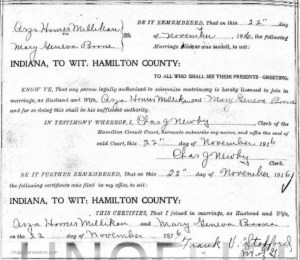 Arza Homer Millikan
BE IT REMEMBERED, That on this 22" day
of November, 1916, the following
Mary Geneva Boone
Marriage License was issued, to-wit:
INDIANA, TO WIT: HAMILTON COUNTY:
TO ALL WHO SHALL SEE THESE PRESENTS—GREETING.
KNOW YE, That any person legally authorized to solemnize matrimony is hereby licensed to join in
marriage, as Husband and Wife, Arza Homer Millikan and Mary Geneva Boone
and for so doing this shall be his sufficient authority.
IN TESTIMONY WHEREOF, I, Chas J Newby, Clerk of the
Hamilton Circuit Court, hereunto subscribe my name, and affix the seal of
said Court, this 22" day of November 1916
Chas J Newby Clerk
BE IT FURTHER REMEMBERED, That on this 22" day of November 1916
the following certificate was filed in my office, to-wit:
INDIANA, TO WIT: HAMILTON COUNTY:
THIS CERTIFIES, That I joined in marriage, as Husband and Wife,
Arza Homer Millikan and Mary Geneva Boone
on the 22 day of November 1916
Frank V. Stafford
M.of G.